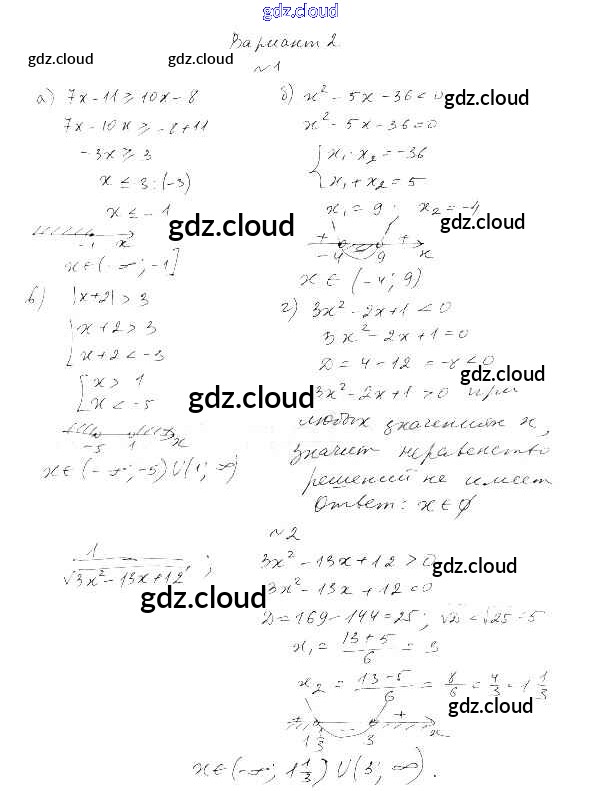 gdz.cloud
Вариант 2
gdz.cloud
gdz.cloud
№1
а) 7x - 11 ≥ 10x - 8
7x - 10x ≥ -8 + 11
-3x ≥ 3
x ≤ 3 : (-3)
x ≤ -1
-1 x
x ∈ (-∞; -1]
б) x² - 5x - 36 < 0
gdz.cloud
x² - 5x - 36 = 0
{ x₁ · x₂ = -36
x₁ + x₂ = 5
x₁ = 9; x₂ = -4
gdz.cloud
gdz.cloud
+ - + x
-4 9
x ∈ (-4; 9)
в) |x+2| > 3
[ x + 2 > 3
x + 2 < -3
[ x > 1
x < -5
-5 1 x
x ∈ (-∞; -5) U (1; ∞)
г) 3x² - 2x + 1 < 0
3x² - 2x + 1 = 0
D = 4 - 12 = -8 < 0
gdz.cloud
gdz.cloud
3x² - 2x + 1 > 0 при
любых значениях x,
значит неравенство
решений не имеет
Ответ: x ∈ ∅
№2
1/√(3x² - 13x + 12);
3x² - 13x + 12 > 0
gdz.cloud
3x² - 13x + 12 = 0
gdz.cloud
D = 169 - 144 = 25; √D = √25 = 5
x₁ = (13 + 5)/6 = 3
x₂ = (13 - 5)/6 = 8/6 = 4/3 = 1 1/3
gdz.cloud
- + x
1 1/3 3
x ∈ (-∞; 1 1/3) U (3; ∞).